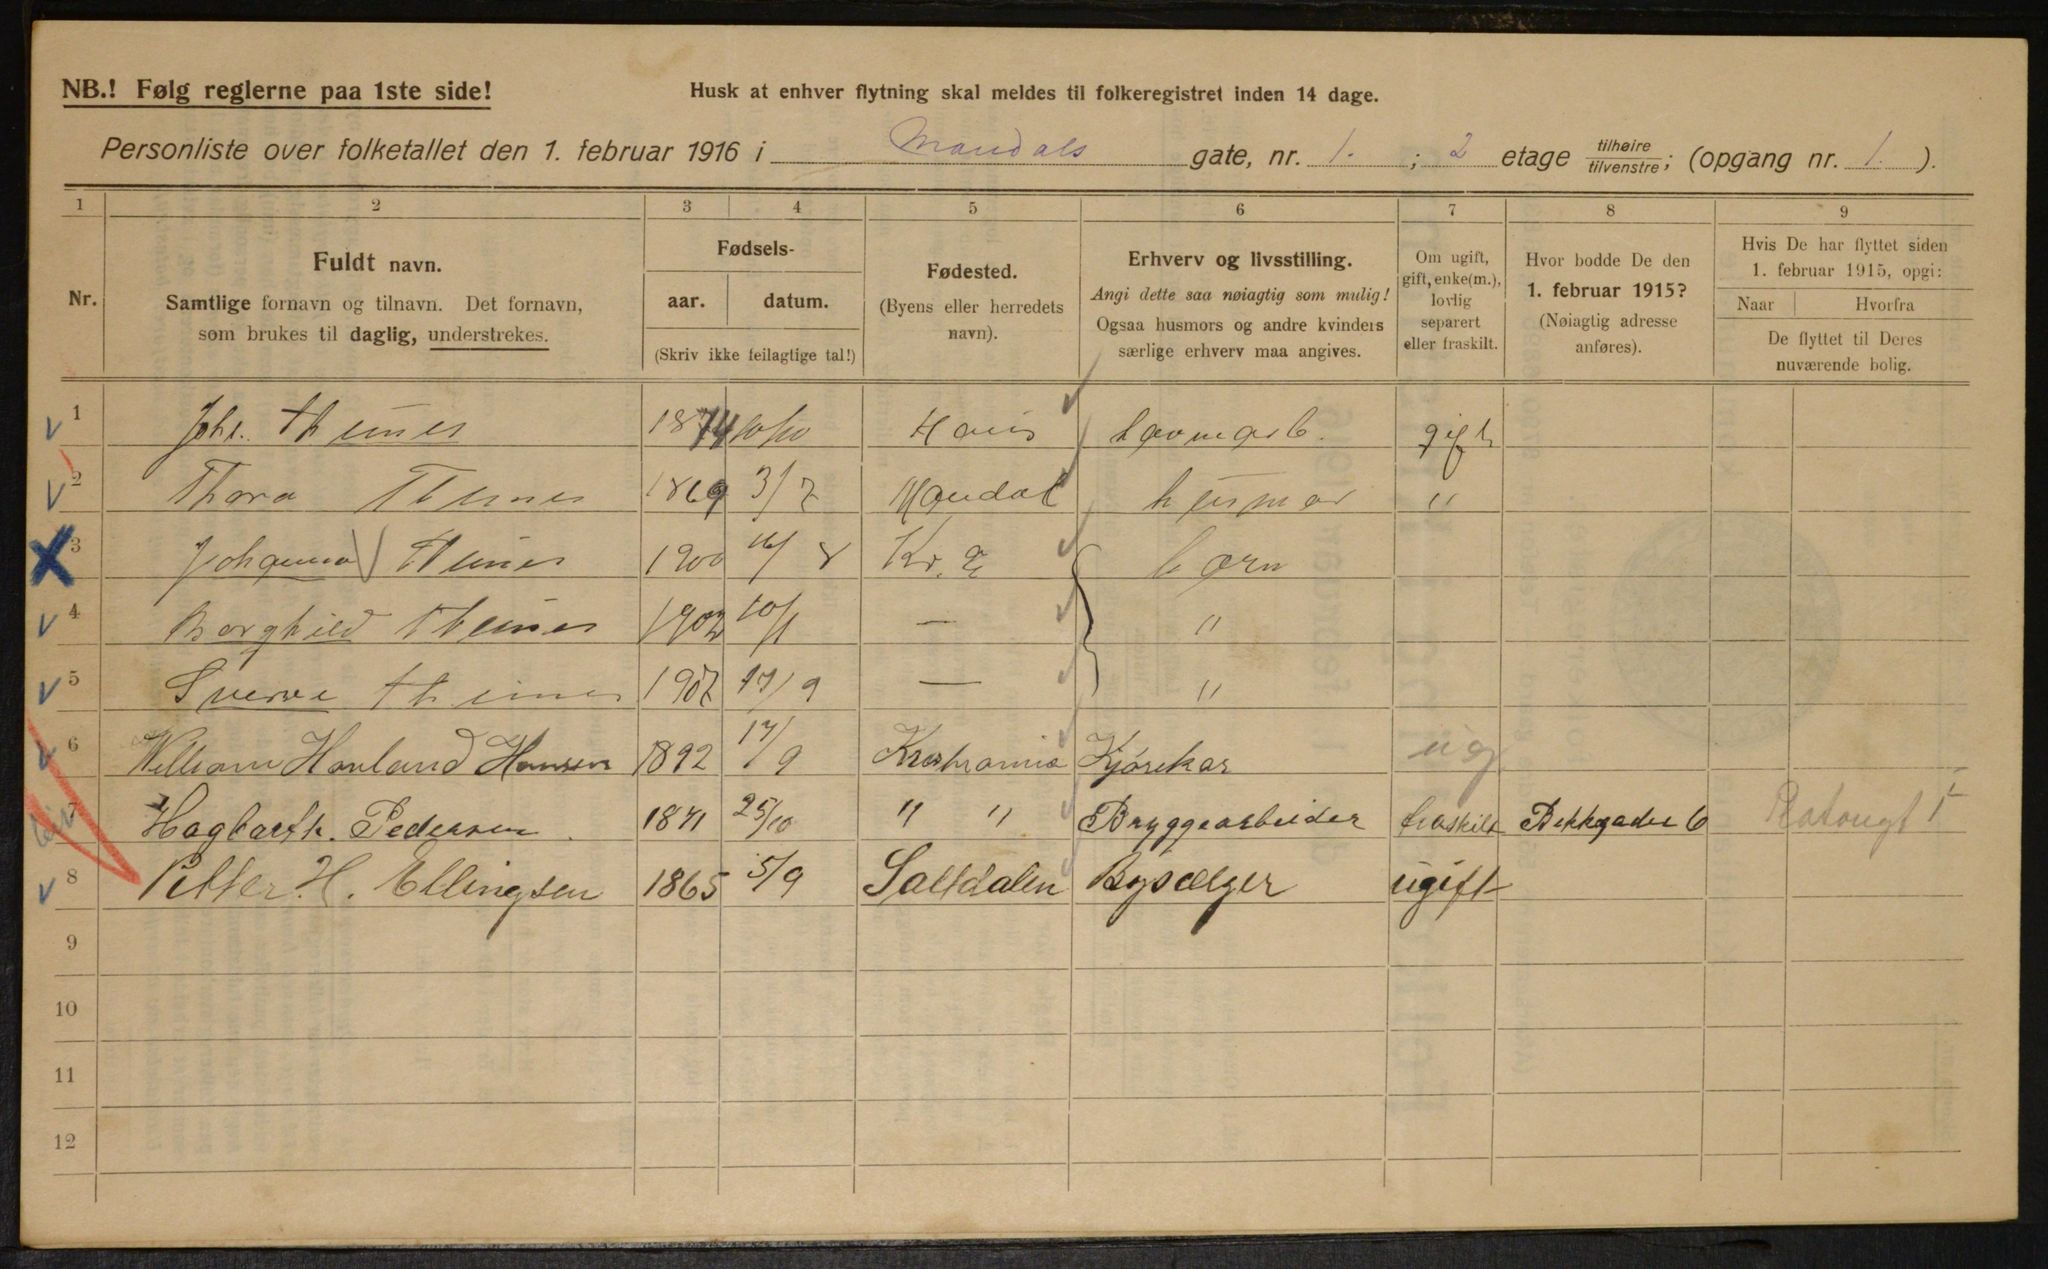 NB.! Følg reglerne paa 1ste side!
Husk at enhver flytning skal meldes til folkeregistret inden 14 dage.
Personliste over folketallet den 1. februar 1916 i Mandals gate, nr. 1. ; 2 etage tilhøire/tilvenstre; (opgang nr. 1. ).
1 2 3 4 5 6 7 8 9
Nr.
Fuldt navn.
Samtlige fornavn og tilnavn. Det fornavn,
som brukes til daglig, understrekes.
Fødsels-
aar. datum.
(Skriv ikke feilagtige tal!)
Fødested.
(Byens eller herredets
navn).
Erhverv og livsstilling.
Angi dette saa nøiagtig som mulig!
Ogsaa husmors og andre kvinders
særlige erhverv maa angives.
Om ugift,
gift, enke(m.),
lovlig
separert
eller fraskilt.
Hvor bodde De den
1. februar 1915?
(Nøiagtig adresse
anføres).
Hvis De har flyttet siden
1. februar 1915, opgi:
Naar Hvorfra
De flyttet til Deres
nuværende bolig.
1 Joh. Theines 1874 10/10 gift
2 Thora Theines 1869 3/7 Mandal husmor "
3 Johanna Theines 1900 16/8 Kr. a børn
4 Borghild Theines 1902 10/1 — "
5 Sverre Theines 1907 17/9 — "
6 William Havland Hansen 1892 17/9 Kristiania Kjørekar ug
7 Hagbarth. Pedersen 1871 25/10 " " Bryggearbeider fraskilt Bekkgaden 6
8 Petter. H. Ellingsen 1865 5/9 Saltdalen Bysælger ugift
9
10
11
12